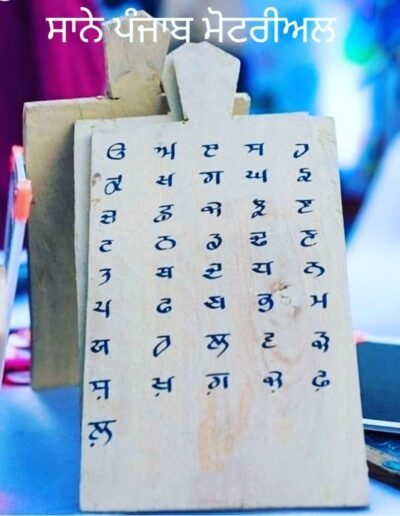 ਸਾਨੇ ਪੰਜਾਬ ਮੋਟਰੀਅਲ
ੳ ਅ ੲ ਸ ਹ
ਕ ਖ ਗ ਘ ਙ
ਚ ਛ ਜ ਝ ਞ
ਟ ਠ ਡ ਢ ਣ
ਤ ਥ ਦ ਧ ਨ
ਪ ਫ ਬ ਭ ਮ
ਯ ਰ ਲ ਵ ੜ
ਸ਼ ਖ਼ ਗ਼ ਜ਼ ਫ਼
ਲ਼